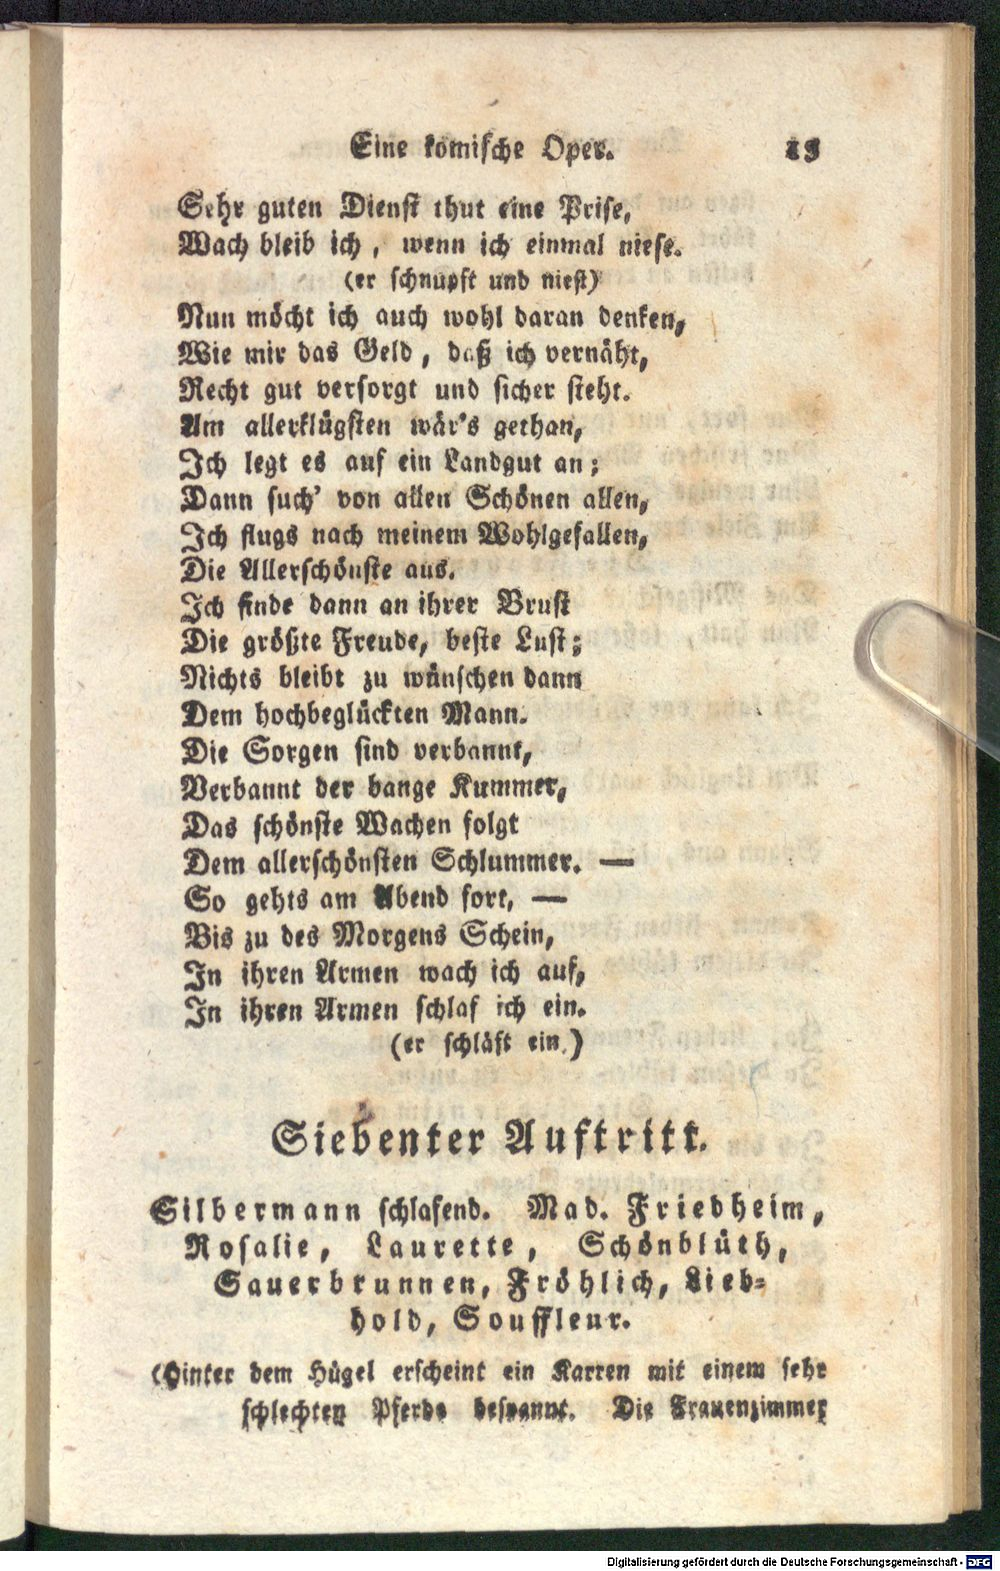 Eine komische Oper. 15
Sehr guten Dienst thut eine Prise,
Wach bleib ich, wenn ich einmal niese.
(er schnupft und niest)
Nun möcht ich auch wohl daran denken,
Wie mir das Geld, daß ich vernäht,
Recht gut versorgt und sicher steht.
Am allerklügsten wär's gethan,
Ich legt es auf ein Landgut an;
Dann such' von allen Schönen allen,
Ich flugs nach meinem Wohlgefallen,
Die Allerschönste aus.
Ich finde dann an ihrer Brust
Die größte Freude, beste Lust;
Nichts bleibt zu wünschen dann
Dem hochbeglückten Mann.
Die Sorgen sind verbannt,
Verbannt der bange Kummer,
Das schönste Wachen folgt
Dem allerschönsten Schlummer. —
So gehts am Abend fort, —
Bis zu des Morgens Schein,
In ihren Armen wach ich auf,
In ihren Armen schlaf ich ein.
(er schläft ein.)
Siebenter Auftritt.
Silbermann schlafend. Mad. Friedheim,
Rosalie, Laurette, Schönblüth,
Sauerbrunnen, Fröhlich, Lieb-
hold, Souffleur.
(Hinter dem Hügel erscheint ein Karren mit einem sehr
schlechten Pferde bespannt. Die Frauenzimmer
Digitalisierung gefördert durch die Deutsche Forschungsgemeinschaft - DFG